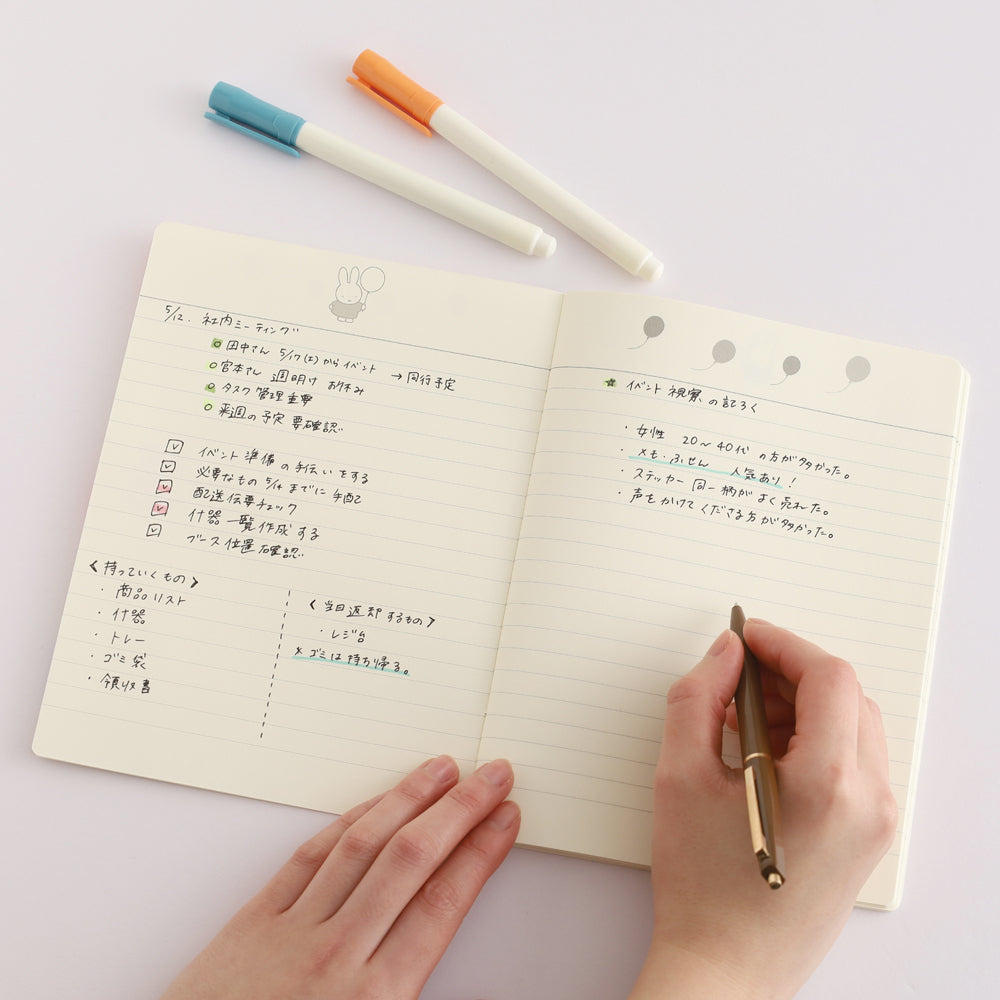 5/12. 社内ミーティング
田中さん 5/17(土)からイベント → 同行予定
宮本さん 週明け お休み
タスク管理重要
来週の予定 要確認
イベント準備の手伝いをする
必要なもの 5/14までに手配
配送伝票チェック
什器一覧作成する
ブース位置確認
〈持っていくもの〉
・商品リスト
・什器
・トレー
・ゴミ袋
・領収書
〈当日返却するもの〉
・レジ台
※ゴミは持ち帰る。
イベント視察の記ろく
・女性 20～40代の方が多かった。
・メモ・ふせん 人気あり!
・ステッカー 同一柄がよく売れた。
・声をかけてくださる方が多かった。